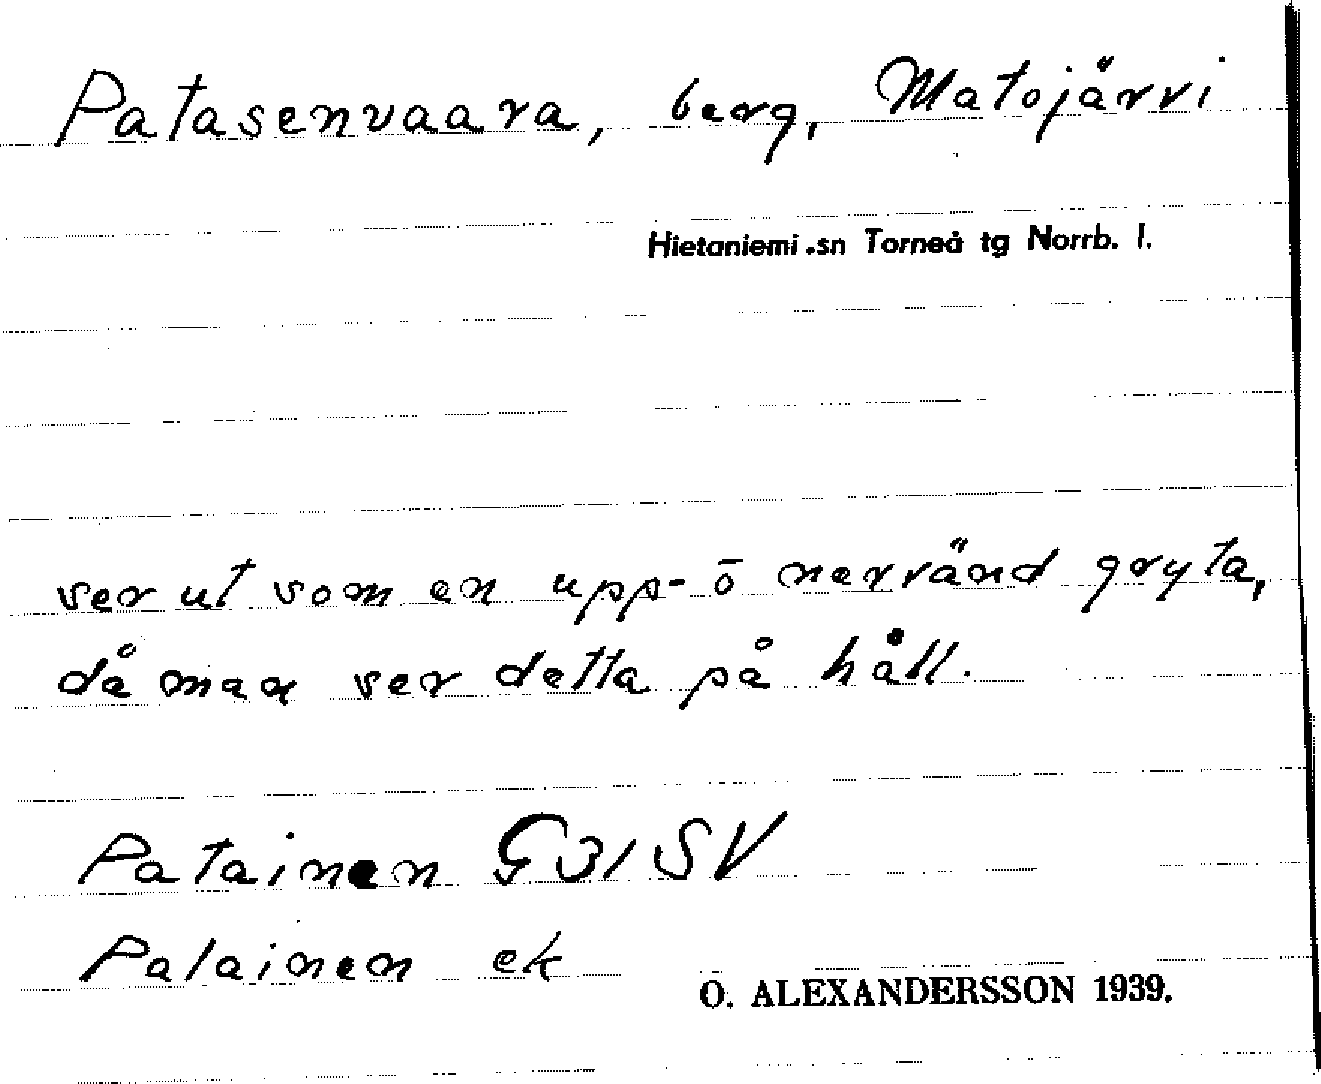 Patasenvaara, berg, Matojärvi
Hietaniemi sn Torneå tg Norrb. l.
ser ut som en upp- o nervänd gryta,
då man ser detta på håll.
Patainen G 31 SV
Palainen ek
O. ALEXANDERSSON 1939.